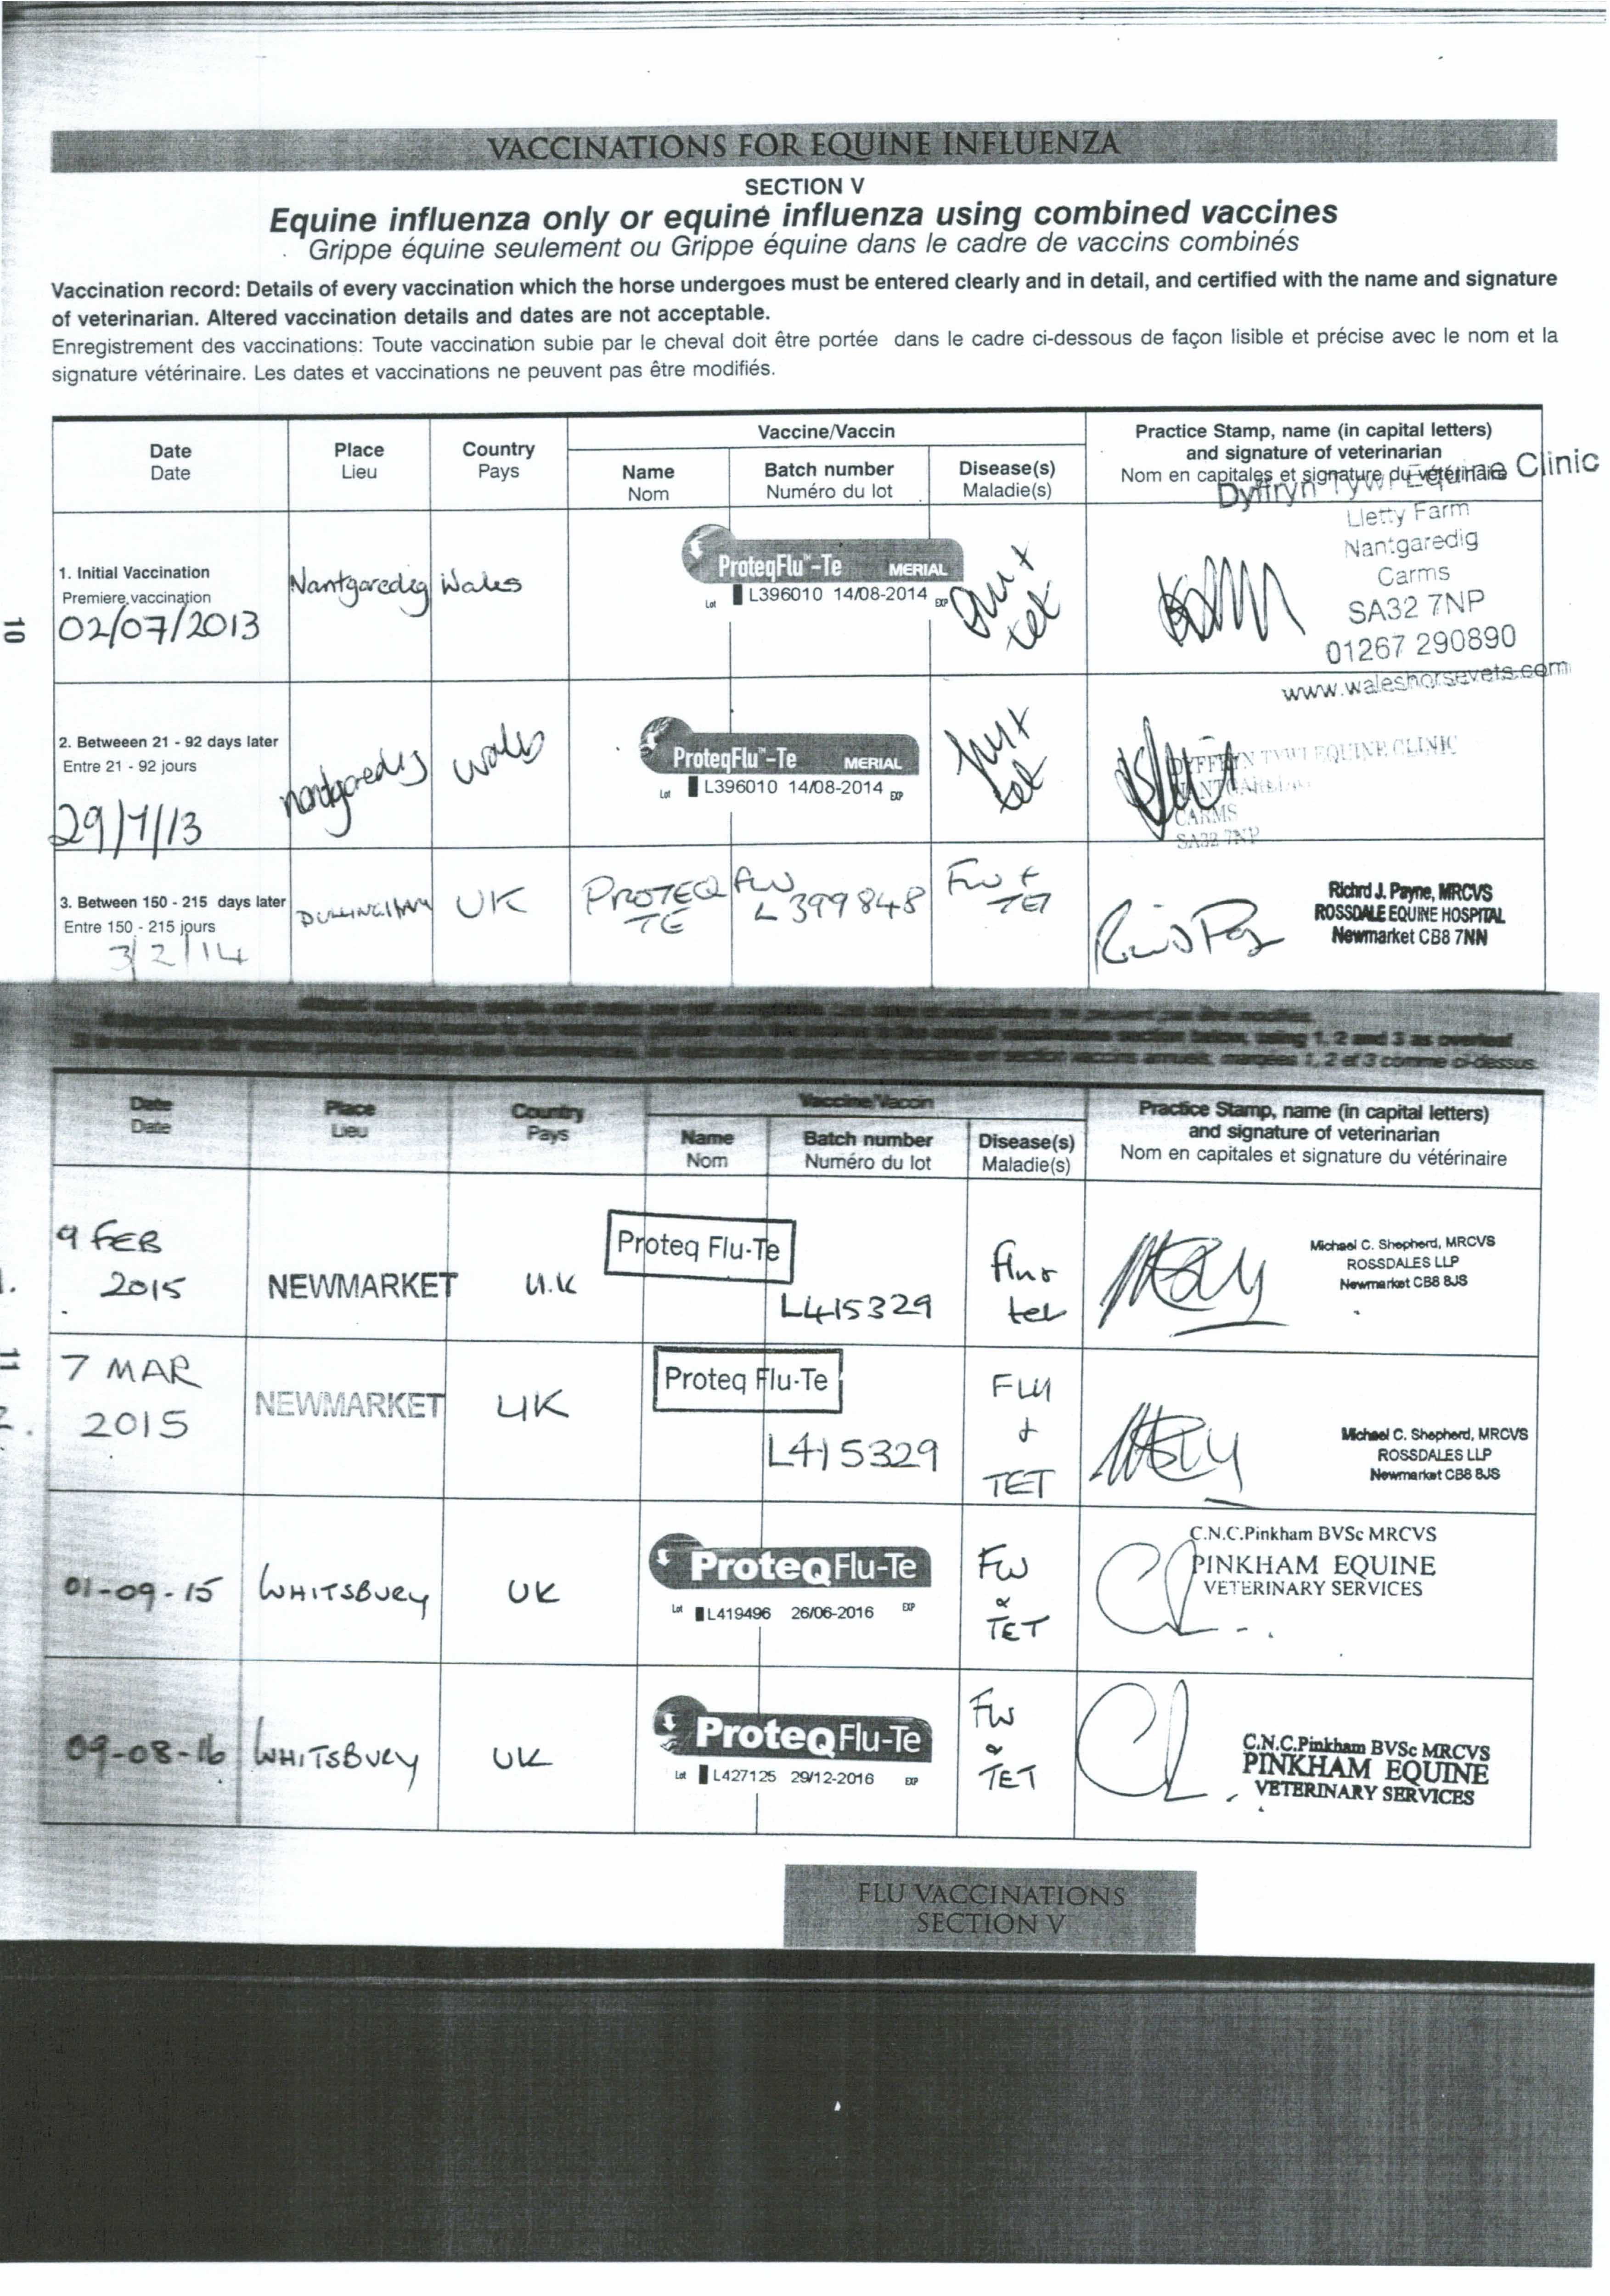 VACCINATIONS FOR EQUINE INFLUENZA
SECTION V
Equine influenza only or equine influenza using combined vaccines
Grippe équine seulement ou Grippe équine dans le cadre de vaccins combinés
Vaccination record: Details of every vaccination which the horse undergoes must be entered clearly and in detail, and certified with the name and signature
of veterinarian. Altered vaccination details and dates are not acceptable.
Enregistrement des vaccinations: Toute vaccination subie par le cheval doit être portée dans le cadre ci-dessous de façon lisible et précise avec le nom et la
signature vétérinaire. Les dates et vaccinations ne peuvent pas être modifiés.
Date
Date
Place
Lieu
Country
Pays
Vaccine/Vaccin
Name
Nom
Batch number
Numéro du lot
Disease(s)
Maladie(s)
Practice Stamp, name (in capital letters)
and signature of veterinarian
Nom en capitales et signature du vétérinaire
10
1. Initial Vaccination
Premiere vaccination
02/07/2013
Nantgaredig
Wales
ProteqFlu™-Te MERIAL
Lot L396010 14/08-2014 EXP
flu +
tet
Dyffryn Tywi Equine Clinic
Lletty Farm
Nantgaredig
Carms
SA32 7NP
01267 290890
www.waleshorsevets.com
2. Betweeen 21 - 92 days later
Entre 21 - 92 jours
29/7/13
nantgaredig
wales
ProteqFlu™-Te MERIAL
Lot L396010 14/08-2014 EXP
flu +
tet
DYFFRYN TYWI EQUINE CLINIC
NANTGAREDIG
CARMS
SA32 7NP
3. Between 150 - 215 days later
Entre 150 - 215 jours
3/2/14
DULLINGHAM
UK
PROTEQ FLU
TE
L399848
FLU +
TET
Richrd J. Payne, MRCVS
ROSSDALE EQUINE HOSPITAL
Newmarket CB8 7NN
using 1, 2 and 3 as overleaf
marquées 1, 2 et 3 comme ci-dessus.
Date
Date
Place
Lieu
Country
Pays
Vaccine/Vaccin
Name
Nom
Batch number
Numéro du lot
Disease(s)
Maladie(s)
Practice Stamp, name (in capital letters)
and signature of veterinarian
Nom en capitales et signature du vétérinaire
1.
9 FEB
2015
NEWMARKET
U.K
Proteq Flu-Te
L415329
flu +
tet
Michael C. Shepherd, MRCVS
ROSSDALES LLP
Newmarket CB8 8JS
11
2.
7 MAR
2015
NEWMARKET
UK
Proteq Flu-Te
L415329
FLU
+
TET
Michael C. Shepherd, MRCVS
ROSSDALES LLP
Newmarket CB8 8JS
01-09-15
WHITSBURY
UK
ProteqFlu-Te
Lot L419496 26/06-2016 EXP
FLU
&
TET
C.N.C.Pinkham BVSc MRCVS
PINKHAM EQUINE
VETERINARY SERVICES
09-08-16
WHITSBURY
UK
ProteqFlu-Te
Lot L427125 29/12-2016 EXP
FLU
&
TET
C.N.C.Pinkham BVSc MRCVS
PINKHAM EQUINE
VETERINARY SERVICES
FLU VACCINATIONS
SECTION V